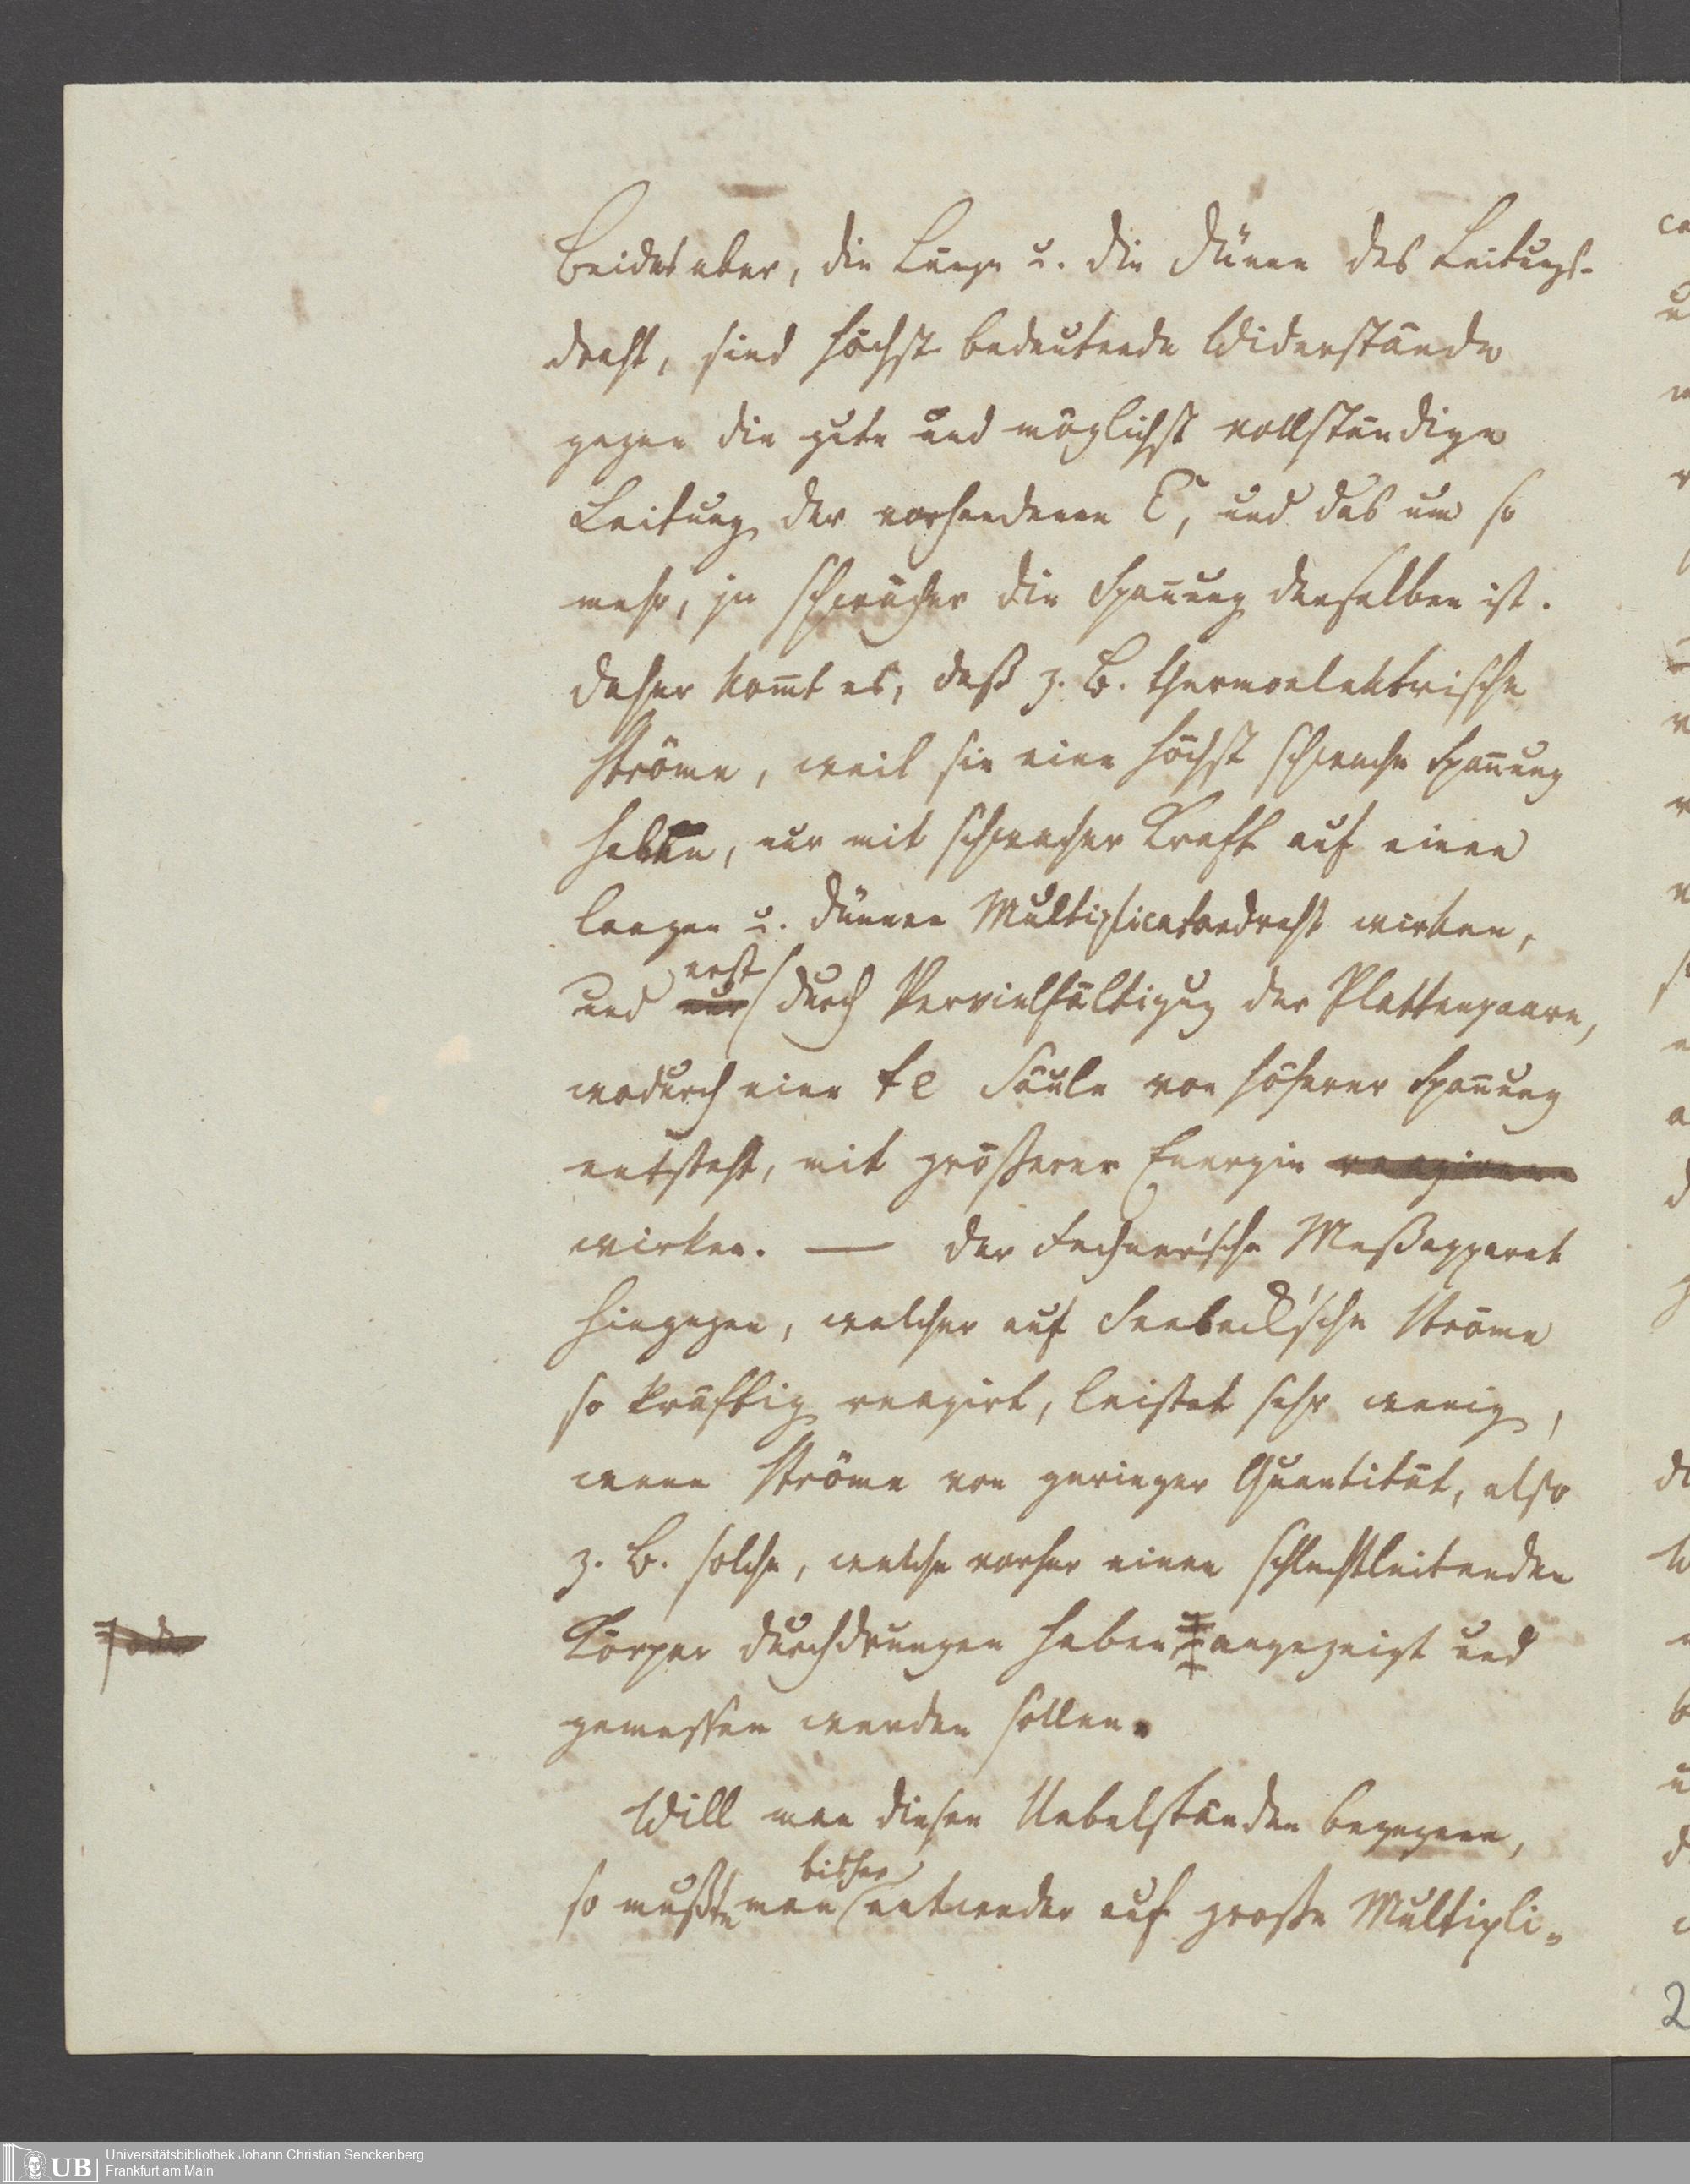 Beides aber, die Länge u. die Dünne des Leitungs-
draht, sind höchst bedeutende Widerstände
gegen die gute und möglichst vollständige
Leitung der vorhandenen E, und das um so
mehr, je schwächer die Span̄ung derselben ist.
Daher kom̄t es, daß z. B. thermoelektrische
Ströme, weil sie eine höchst schwache Span̄ung
haben, nur mit schwacher Kraft auf einen
langen u. dünnen Multiplicatordraht wirken,
erst
und nur durch Vervielfältigug der Plattenpaare,
wodurch eine te Säule von höherer Span̄ung
entsteht, mit größerer Energie reagiren
wirken. — Der Fechner'sche Meßapparat
hingegen, welcher auf Seebeck'sche Ströme
so kräftig reagirt, leistet sehr wenig,
wenn Ströme von geringer Quantität, also
z. B. solche, welche vorher einen schlechtleitenden
oder
Körper durchdrungen haben, angezeigt und
gemessen werden sollen.
Will man diesen Uebelständen begegnen,
bisher
so mußte man entweder auf große Multipli-
2
UB
Universitätsbibliothek Johann Christian Senckenberg
Frankfurt am Main